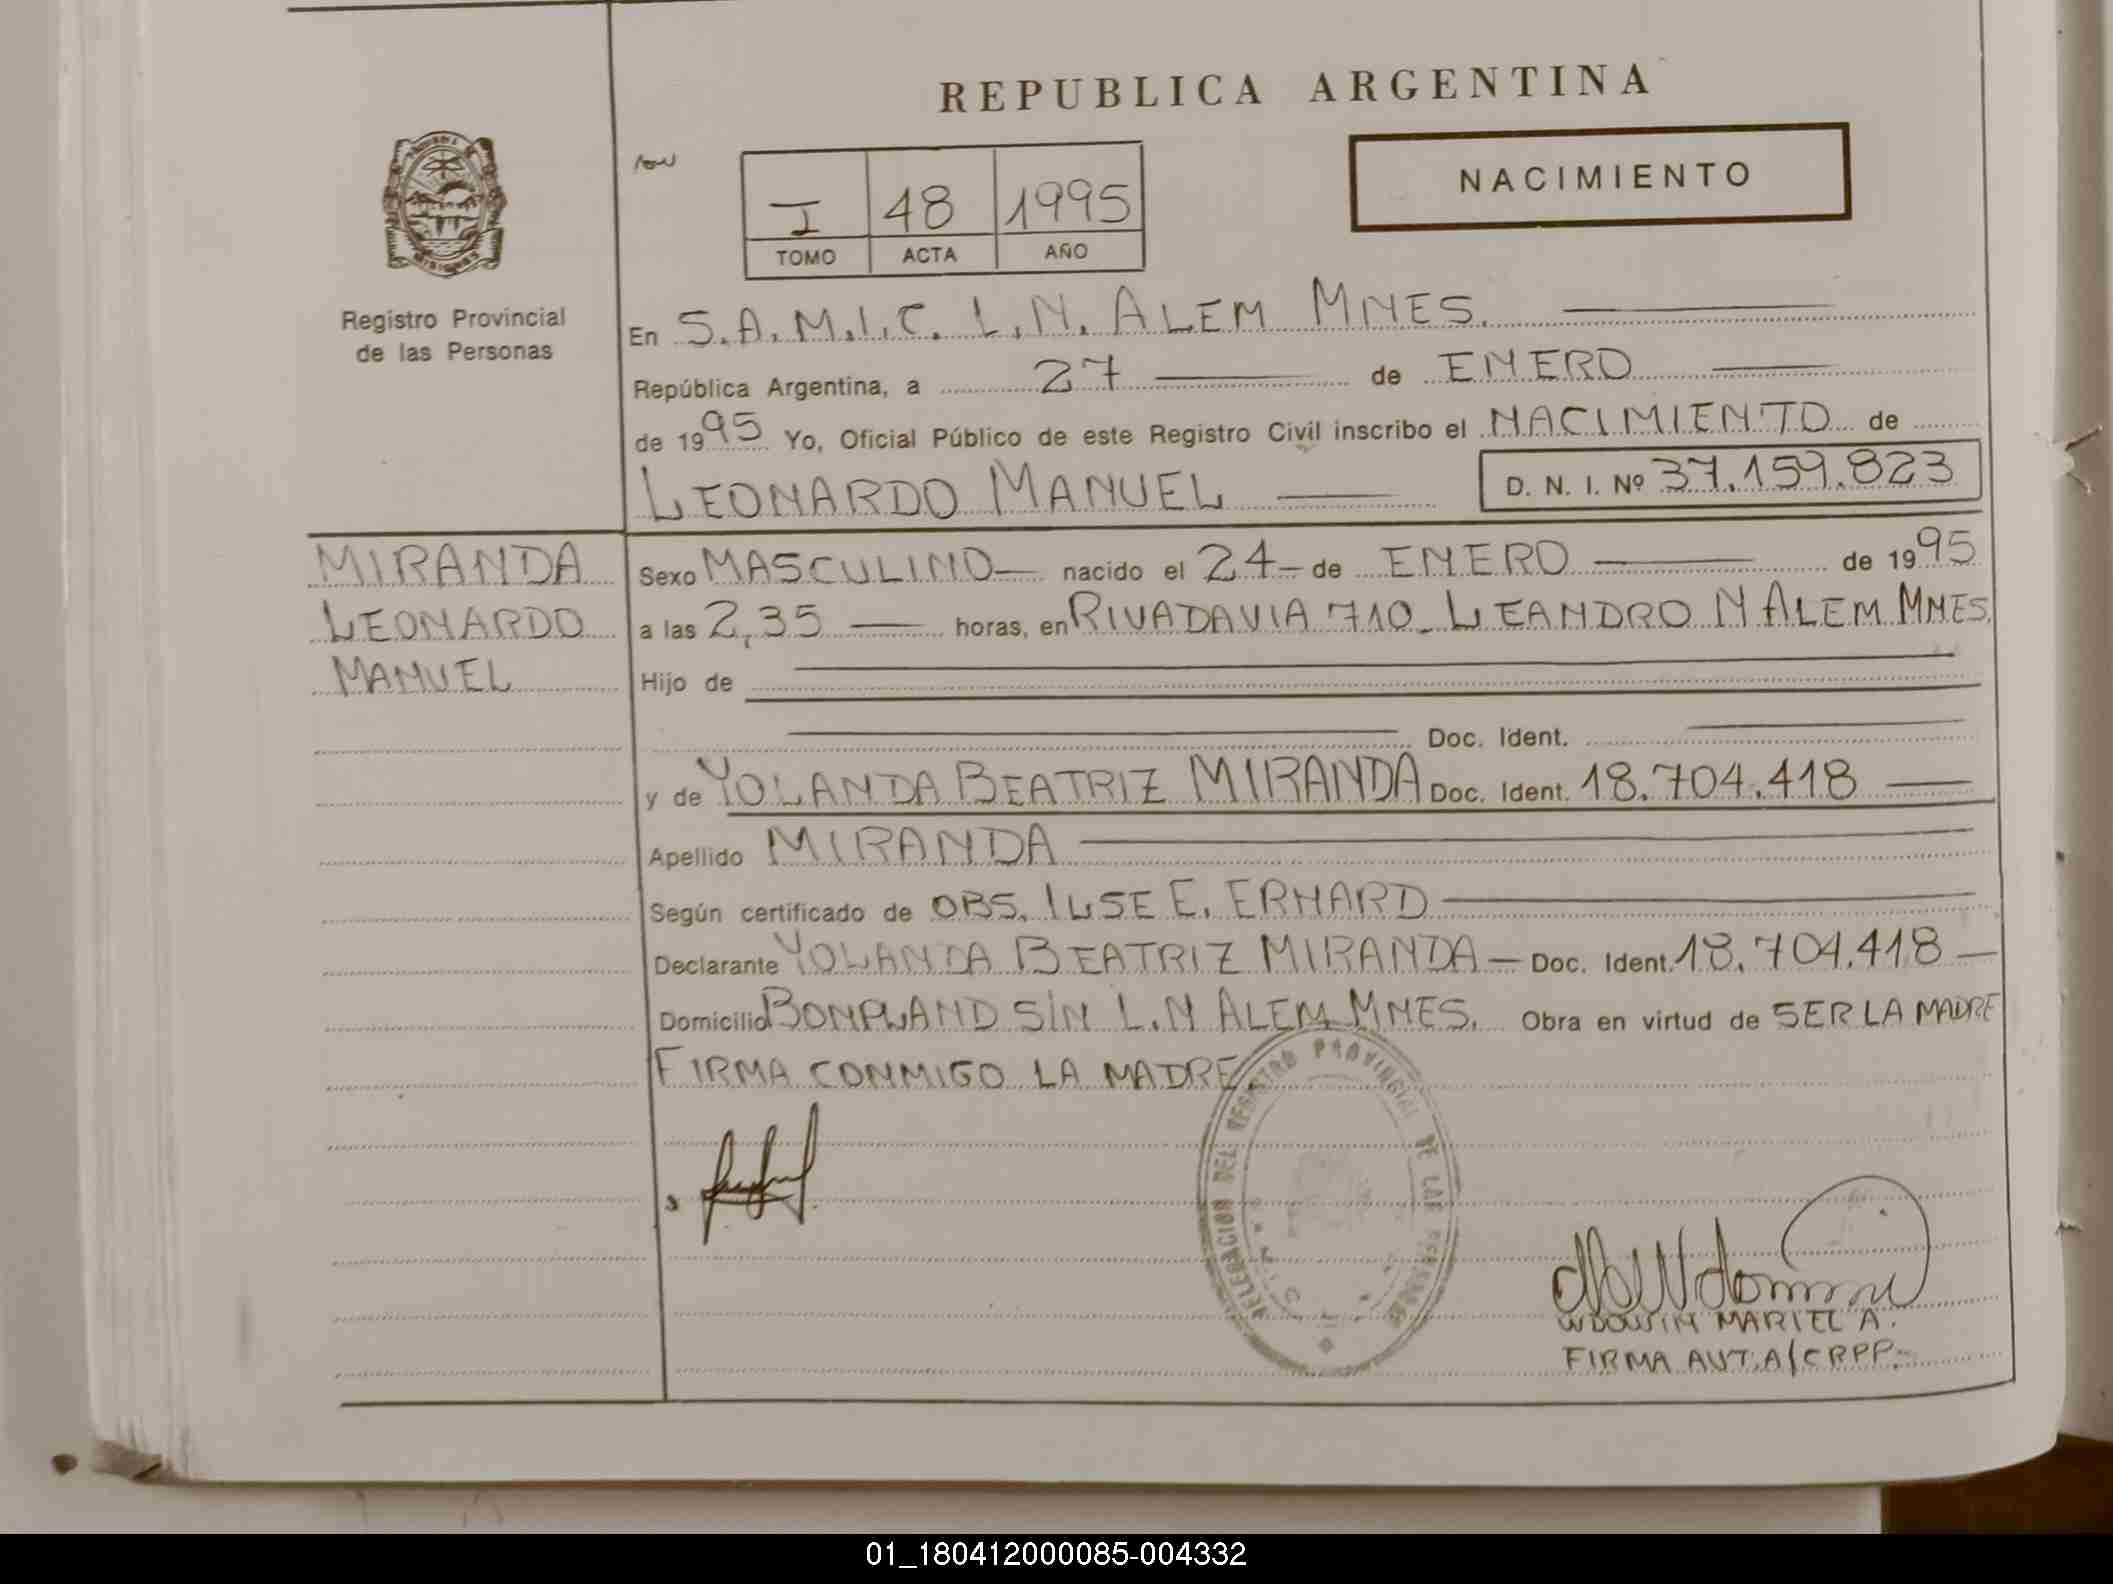 REPUBLICA ARGENTINA
NACIMIENTO
I 48 1995
TOMO ACTA AÑO
Registro Provincial
de las Personas
En S.A.M.I.C. L.N. ALEM MNES.
República Argentina, a 27 de ENERO
de 1995 Yo, Oficial Público de este Registro Civil inscribo el NACIMIENTO de
LEONARDO MANUEL D. N. I. Nº 37.159.823
MIRANDA
LEONARDO
MANUEL
Sexo MASCULINO nacido el 24 de ENERO de 1995
a las 2,35 horas, en RIVADAVIA 710 - LEANDRO N ALEM MNES.
Hijo de
Doc. Ident.
y de YOLANDA BEATRIZ MIRANDA Doc. Ident. 18.704.418
Apellido MIRANDA
Según certificado de OBS. ILSE E. ERHARD
Declarante YOLANDA BEATRIZ MIRANDA - Doc. Ident. 18.704.418
Domicilio BONPLAND S/N L.N ALEM MNES. Obra en virtud de SER LA MADRE
FIRMA CONMIGO LA MADRE.
DELEGACION DEL REGISTRO PROVINCIAL DE LAS PERSONAS
WDOWIN MARIEL A.
FIRMA AUT. A/C RPP.
01_180412000085-004332